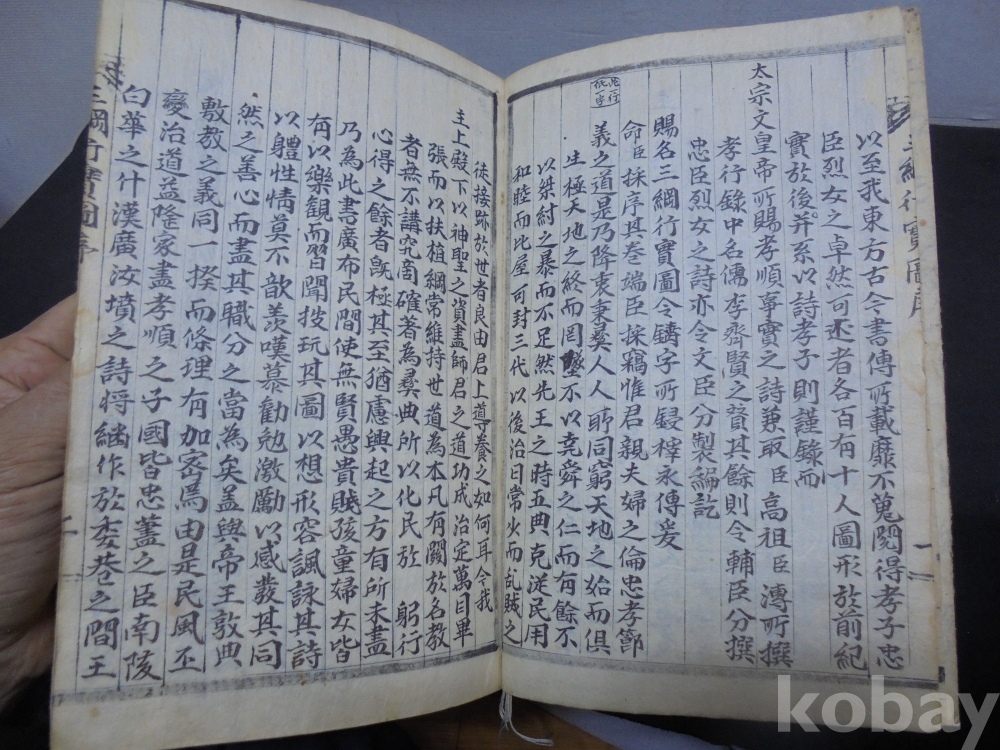 三綱行實圖序 一
以至我東方古今書傳所載靡不蒐閱得孝子忠
臣烈女之卓然可述者各百有十人圖形於前紀
實於後并系以詩孝子則謹錄而
太宗文皇帝所賜孝順事實之詩兼取臣高祖臣溥所撰
孝行錄中名儒李齊賢之賛其餘則令輔臣分撰
忠臣烈女之詩亦令文臣分製編訖
賜名三綱行實圖令鑄字所鋟梓永傳爰
命臣採序其卷端臣採竊惟君親夫婦之倫忠孝節
此行低一字
義之道是乃降衷秉彝人人所同窮天地之始而俱
生極天地之終而罔墜不以堯舜之仁而有餘不
以桀紂之暴而不足然先王之時五典克從民用
和睦而比屋可封三代以後治日常少而乱賊之
徒接跡於世者良由君上導養之如何耳今我
主上殿下以神聖之資盡師君之道功成治定萬目畢
張而以扶植綱常維持世道為本凡有關於名教
者無不講究商確著為彝典所以化民於 躬行
心得之餘者旣極其至猶慮興起之方有所未盡
乃為此書廣布民間使無賢愚貴賤孩童婦女皆
有以樂観而習聞披玩其圖以想形容諷詠其詩
以體性情莫不歆羨嘆慕勸勉激勵以感發其同
然之善心而盡其職分之當為矣盖與帝王敦典
敷教之義同一揆而條理有加密焉由是民風丕
變治道益隆家盡孝順之子國皆忠藎之臣南陔
白華之什漢廣汝墳之詩将繼作於委巷之間王
三綱行實圖序 二
kobay